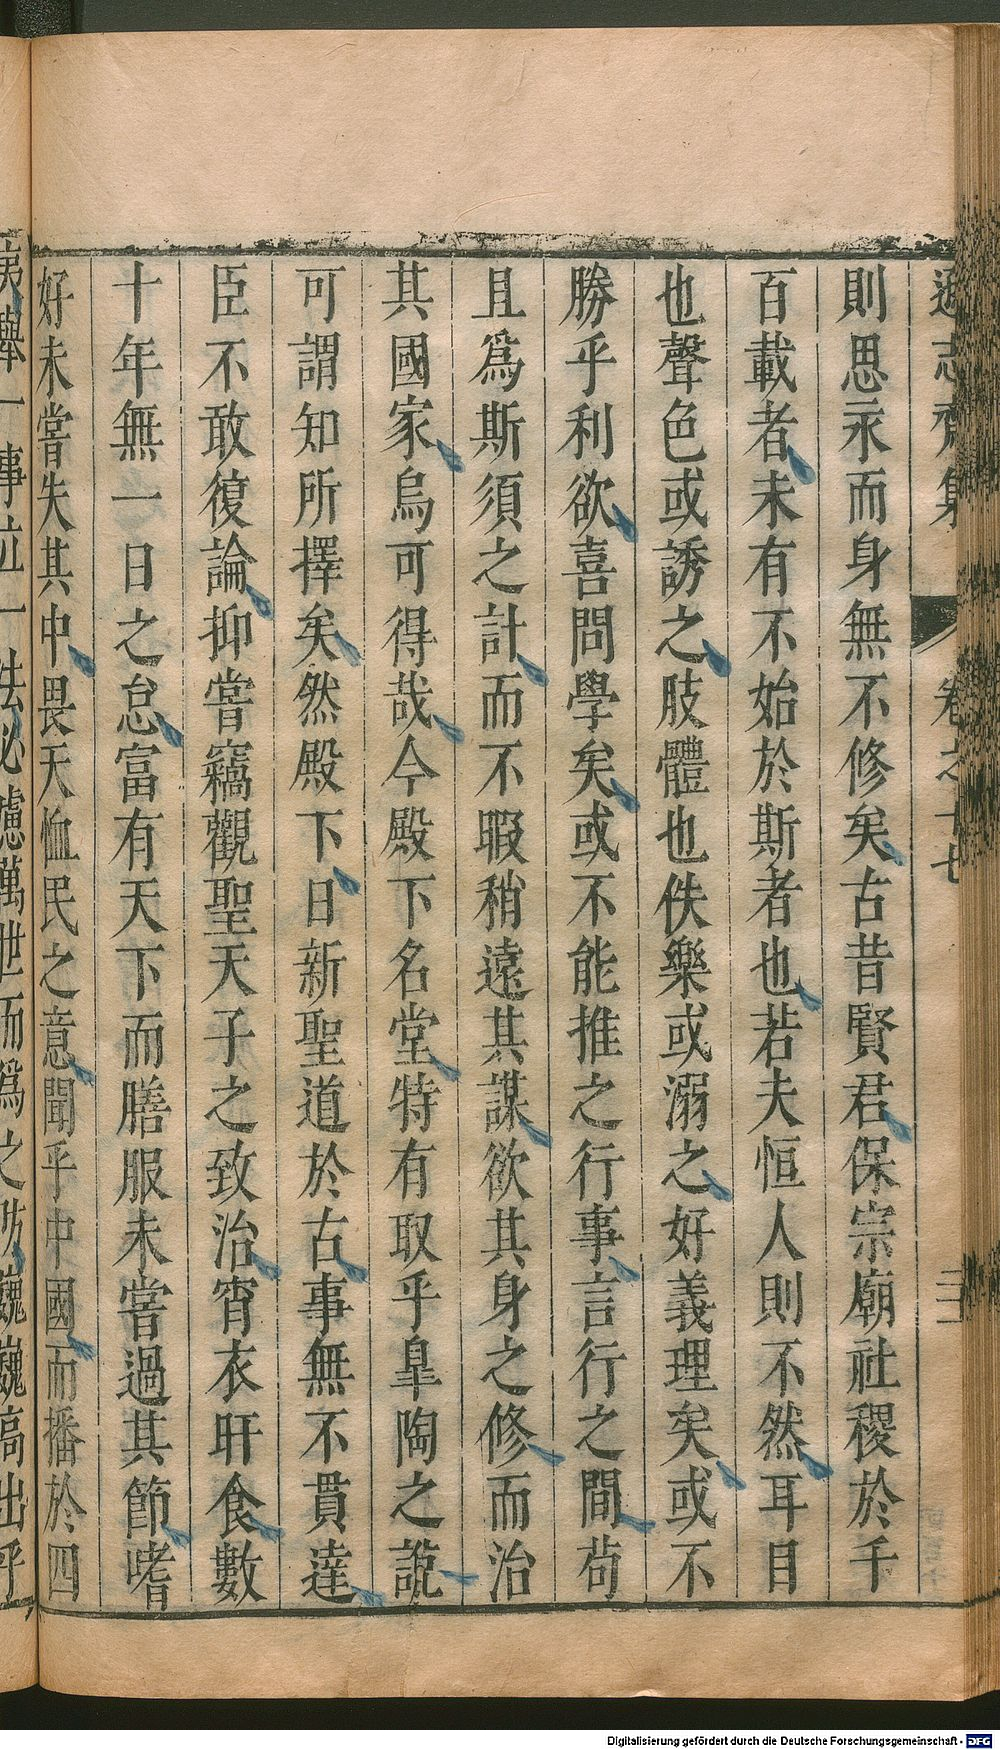 遜志齋集 卷之十七 三
則思永而身無不修矣古昔賢君保宗廟社稷於千
百載者未有不始於斯者也若夫恒人則不然耳目
也聲色或誘之肢體也佚樂或溺之好義理矣或不
勝乎利欲喜問學矣或不能推之行事言行之間茍
且爲斯須之計而不暇稍遠其謀欲其身之修而治
其國家烏可得哉今殿下名堂特有取乎臯陶之說
可謂知所擇矣然殿下日新聖道於古事無不貫達
臣不敢復論抑嘗竊觀聖天子之致治宵衣旰食數
十年無一日之怠富有天下而膳服未嘗過其節嗜
好未嘗失其中畏天恤民之意聞乎中國而播於四
夷舉一事立一法必慮萬世而爲之防巍巍高出乎
Digitalisierung gefördert durch die Deutsche Forschungsgemeinschaft - DFG